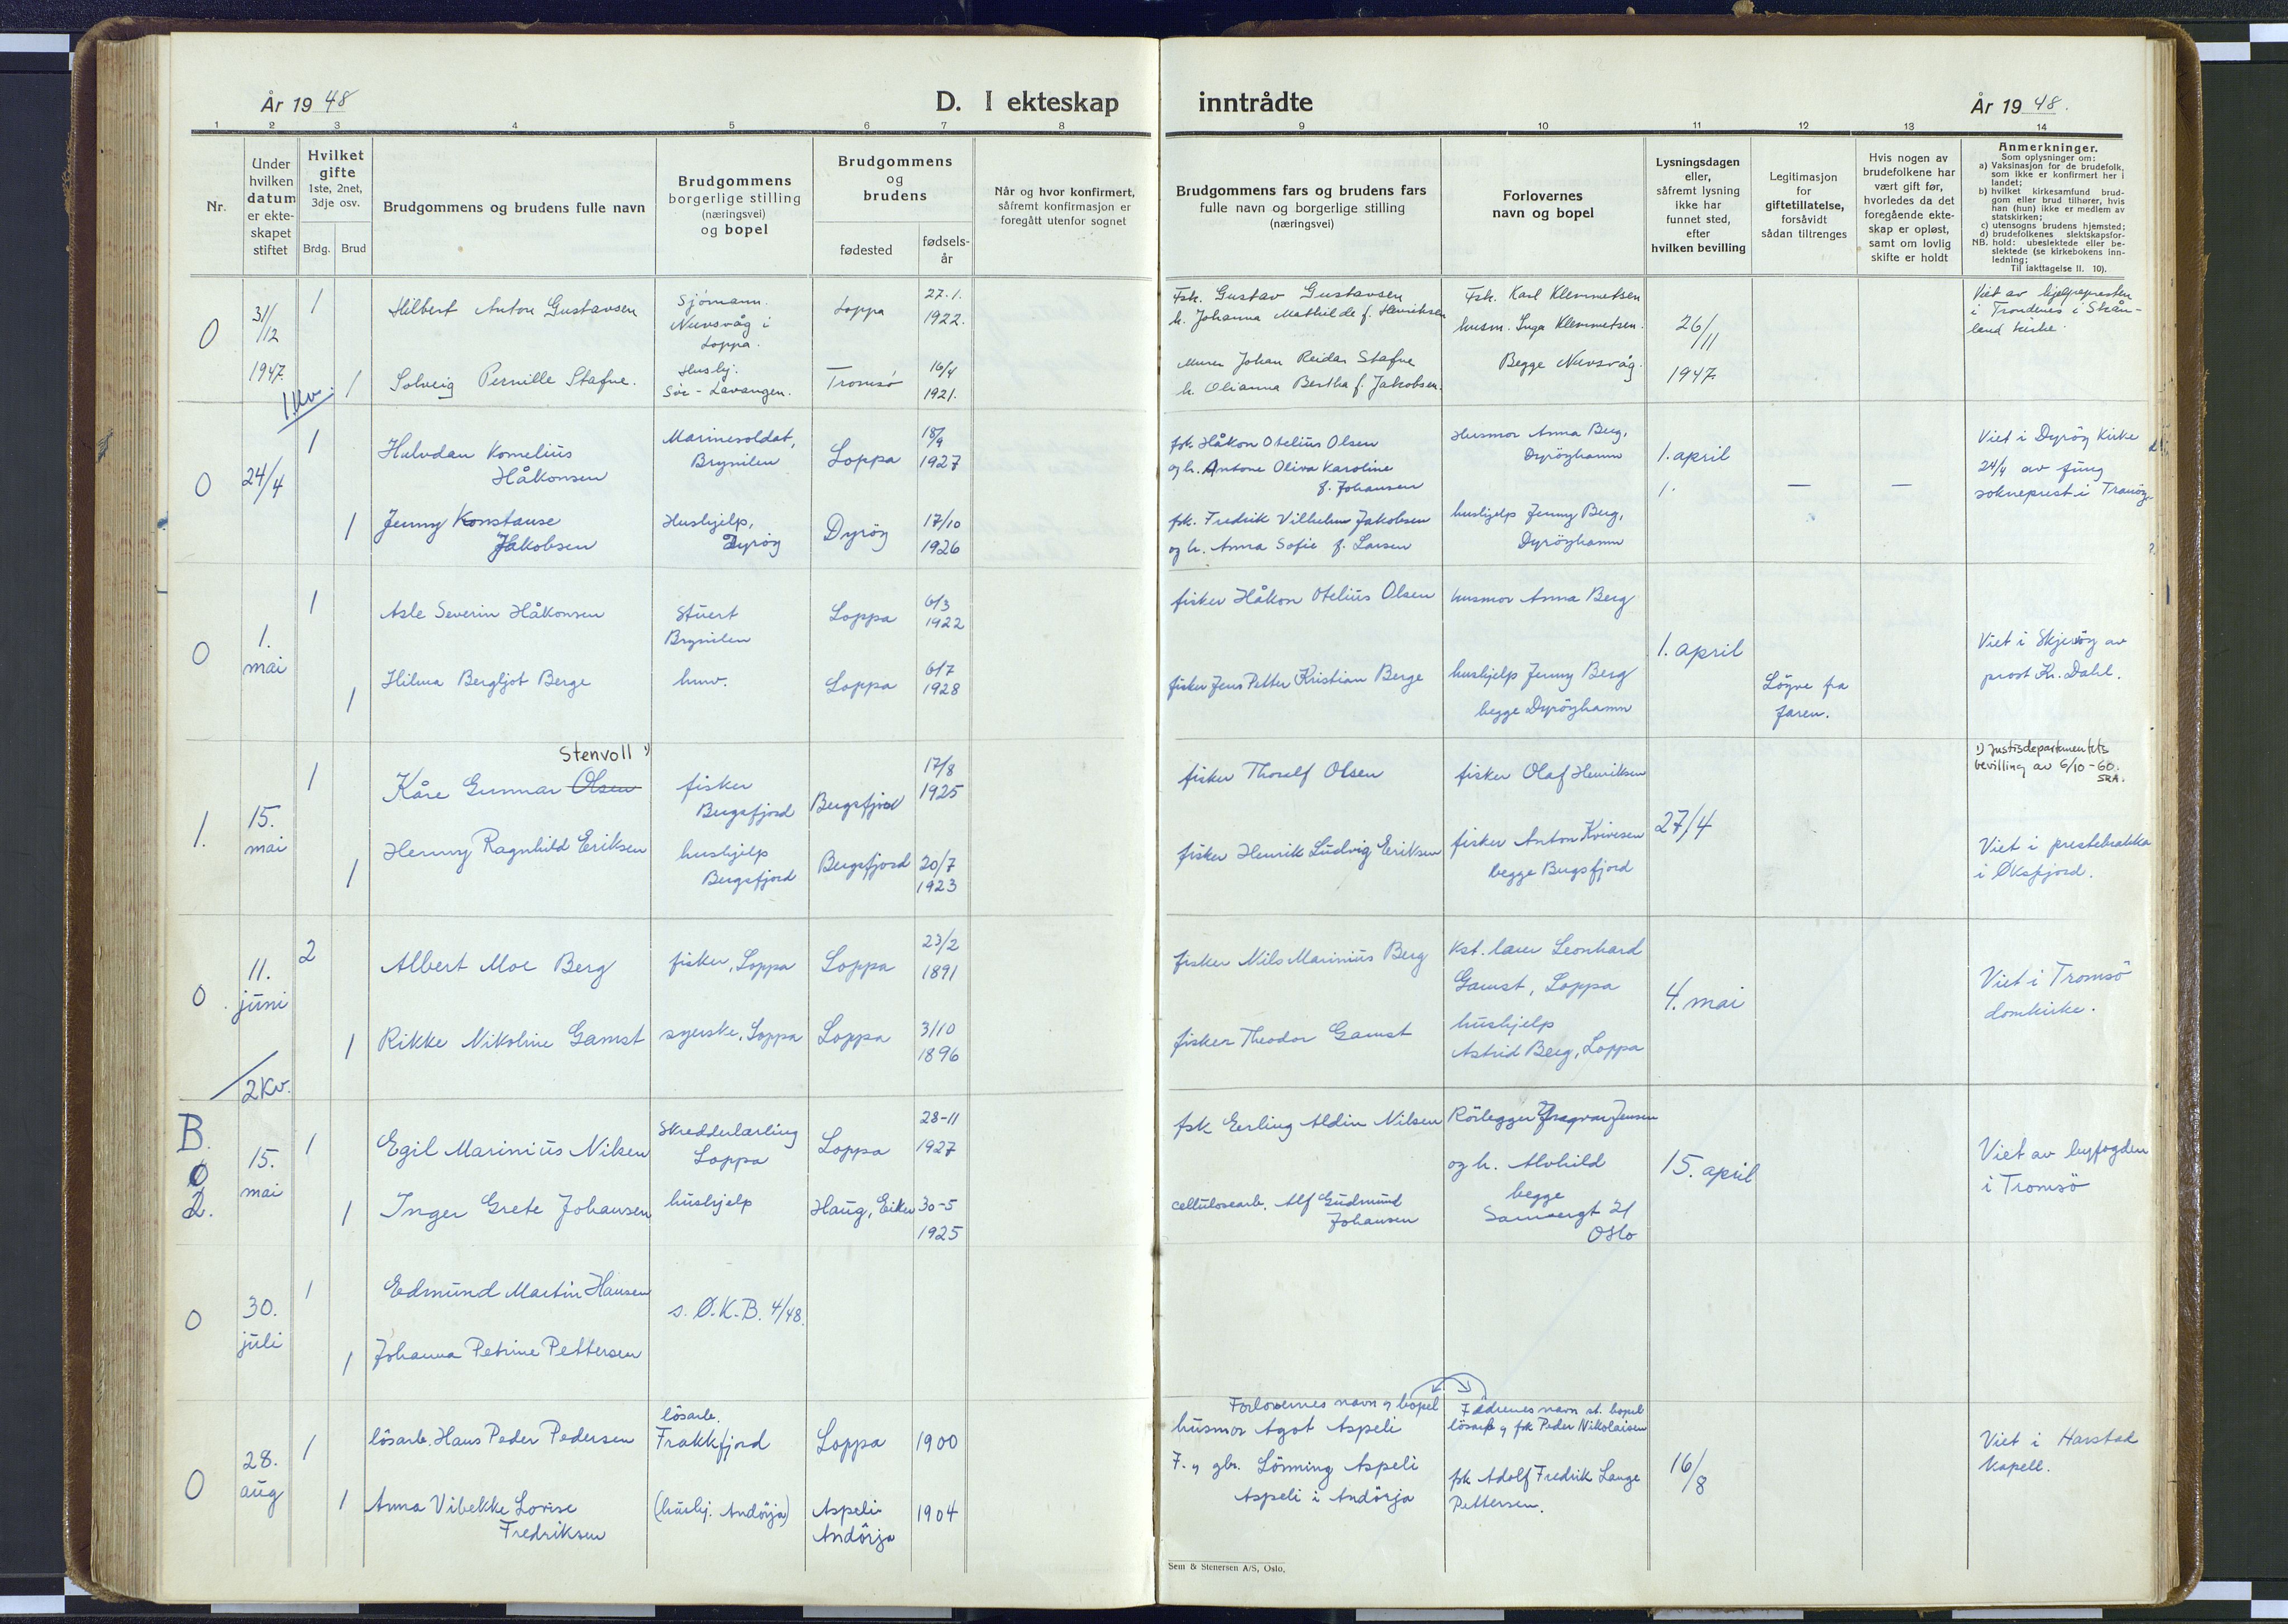 År 1948
D. I ekteskap
inntrådte
År 1948.
1 2 3 4 5 6 7 8 9 10 11 12 13 14
Nr.
Under
hvilken
datum
er ekte-
skapet
stiftet
Hvilket
gifte
1ste, 2net,
3dje osv.
Brdg. Brud
Brudgommens og brudens fulle navn
Brudgommens
borgerlige stilling
(næringsvei)
og bopel
Brudgommens
og
brudens
fødested
fødsels-
år
Når og hvor konfirmert,
såfremt konfirmasjon er
foregått utenfor sognet
Brudgommens fars og brudens fars
fulle navn og borgerlige stilling
(næringsvei)
Forlovernes
navn og bopel
Lysningsdagen
eller,
såfremt lysning
ikke har
funnet sted,
efter
hvilken bevilling
Legitimasjon
for
giftetillatelse,
forsåvidt
sådan tiltrenges
Hvis nogen av
brudefolkene har
vært gift før,
hvorledes da det
foregående ekte-
skap er opløst,
samt om lovlig
skifte er holdt
Anmerkninger.
Som oplysninger om:
a) Vaksinasjon for de brudefolk,
som ikke er konfirmert her i
landet;
b) hvilket kirkesamfund brud-
gom eller brud tilhører, hvis
han (hun) ikke er medlem av
statskirken;
c) utensogns brudens hjemsted;
d) brudefolkenes slektskapsfor-
NB. hold: ubeslektede eller be-
slektede (se kirkebokens inn-
ledning;
Til iakttagelse II. 10).
0
31/12
1947.
1
Hilbert Antore Gustavsen
Sjömann.
Nuvsvåg i
Loppa.
Loppa
27.1.
1922.
Fsk. Gustav Gustavsen
h. Johanna Mathilde f. Henriksen
Fsk. Karl Klemmetsen
husm. Inga Klemmetsen.
26/11
1947.
Viet av hjelpepresten
i Trondenes i Skån-
land kirke.
1
Solveig Pernille Stafne.
Hushj.
Sör-Lavangen.
Tromsö
16/4
1921.
Murer Johan Reidar Stafne
h. Olianna Bertha f. Jakobsen.
Begge Nuvsvåg.
1.kv.
0
24/4
1
Halvdan Kornelius
Håkonsen
Marinesoldat,
Brynilen
Loppa
18/9
1927
fsk. Håkon Otelius Olsen
og h. Antone Oliva Karoline
f. Johansen
Husmor Anna Berg,
Dyröyhamn
1. april
1.
—
—
Viet i Dyröy Kirke
24/4 av fung
sokneprest i Tranöy.
1
Jenny Konstanse
Jakobsen
Hushjelp,
Dyröy
Dyröy
17/10
1926
fsk. Fredrik Vilhelm Jakobsen
og h. Anna Sofie f. Larsen
hushjelp Jenny Berg,
Dyröyhamn
0
1.
mai
1
Asle Severin Håkonsen
Stuert
Brynilen
Loppa
6/3
1922
fisker Håkon Otelius Olsen
husmor Anna Berg
1. april
Viet i Skjervöy av
prost Kr. Dahl.
1
Hilma Bergljot Berge
hmv.
Loppa
6/7
1928
fisker Jens Petter Kristian Berge
hushjelp Jenny Berg
begge Dyröyhamn
Löyve fra
faren.
1.
15.
mai
1
Stenvoll 1)
Kåre Gunnar Olsen
fisker
Bergsfjord
Bergsfjord
17/8
1925
fisker Thoralf Olsen
fisker Olaf Henriksen
27/4
1) Justisdepartementets
bevilling av 6/10-60.
SRA.
1
Henny Ragnhild Eriksen
hushjelp
Bergsfjord
Bergsfjord
20/7
1923
fisker Henrik Ludvig Eriksen
fisker Anton Kvivesen
begge Bergsfjord
Viet i prestebrakka
i Øksfjord.
0
11.
juni
2
Albert Moe Berg
fisker, Loppa
Loppa
23/2
1891
fisker Nils Marinius Berg
Kst. lærer Leonhard
Gamst, Loppa
4. mai
Viet i Tromsö
domkirke.
1
Rikke Nikoline Gamst
syerske, Loppa
Loppa
3/10
1896
fisker Theodor Gamst
hushjelp
Astrid Berg, Loppa
2kv.
B.
0
2.
15.
mai
1
Egil Marinius Nilsen
Skredderlærling
Loppa
Loppa
28-11
1927
fsk Erling Aldin Nilsen
Rörlegger Jensen
og h. Alvhild
begge
21
Oslo
15. april
Viet av byfogden
i Tromsö
1
Inger Grete Johansen
hushjelp
Haug, Eiker
30-5
1925
cellulosearb. Alf Gudmund
Johansen
0
30.
juli
1
Edmund Martin Hansen
s. Ø.K.B. 4/48.
1
Johanna Petrine Pettersen
0
28.
aug
1
lösarb. Hans Peder Pedersen
lösarb.
Frakkfjord
Loppa
1900
Forlovernes navn og bopel
husmor Agot Aspeli
F. og gbr. Lönning Aspeli
Aspeli i Andörja
Fedrenes navn st. bopel
lösarb og fsk Peder Nikolaisen
16/8
Viet i Harstad
Kapell.
1
Anna Vibekke Lovise
Fredriksen
(hushj. Andörja)
Aspeli
Andörja
1904
fsk Adolf Fredrik Lange
Pettersen.
Sem & Stenersen A/S, Oslo.